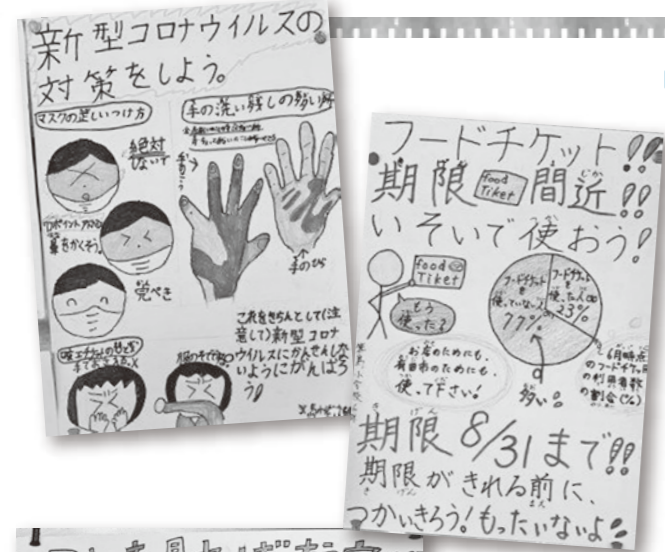 新型コロナウイルスの
対策をしよう。
マスクの正しいつけ方
絶対
しないで
ワンポイントアドバイス
鼻をかくそう。
完ぺき
手の洗い残しの多い所
手のこう
手のひら
これをきちんとして(注
意して)新型コロナ
ウイルスにかんせんしな
いようにがんばろ
う
フードチケット!!
期限 food Tiket 間近!!
じか
いそいで使おう!
food
Tiket
もう
使った?
フードチケットを
使っていない人
77%
フードチケットを
使った人
23%
お店のためにも、
有田市のためにも、
使って下さい!
多い。
6月時点
のフードチケット
の利用者数
の割合(%)
期限 8/31まで!!
きげん
期限がきれる前に、
きげん
つかいきろう!もったいないよ